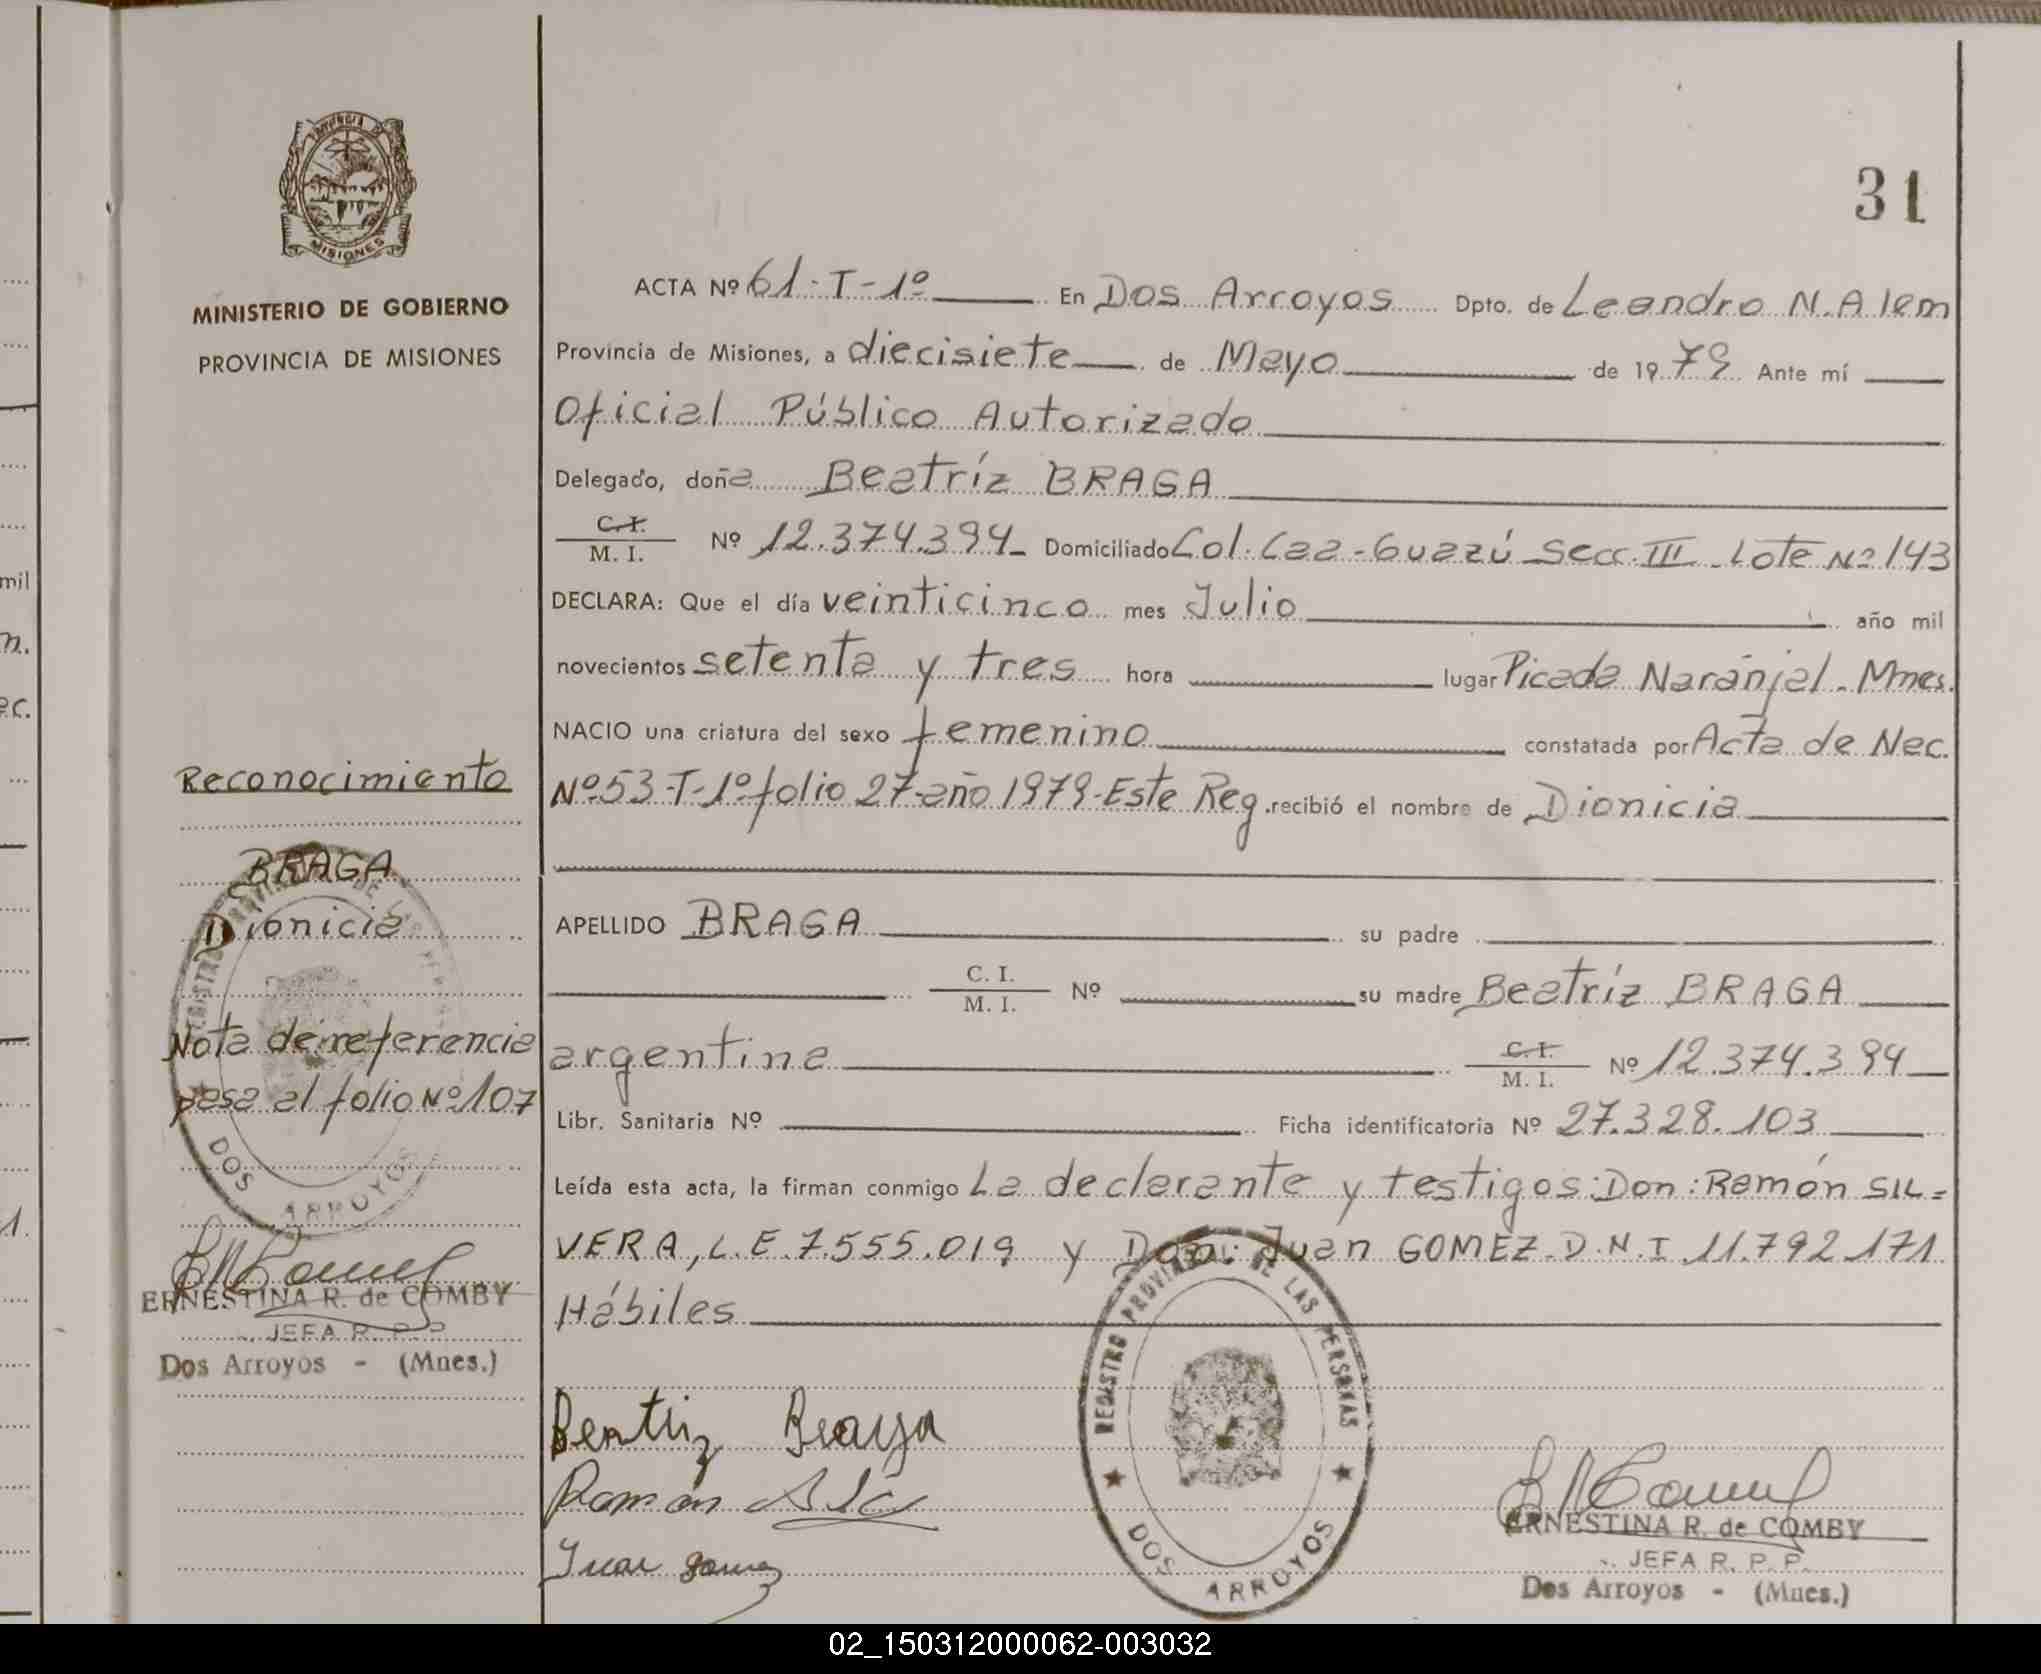 31
PROVINCIA DE
MISIONES
MINISTERIO DE GOBIERNO
PROVINCIA DE MISIONES
ACTA Nº 61-T-1º En Dos Arroyos Dpto. de Leandro N. Alem
Provincia de Misiones, a diecisiete de Mayo de 1979 Ante mí
Oficial Público Autorizado
Delegado, doña Beatríz BRAGA
C.I. M. I. Nº 12.374.394 Domiciliado Col. Caa-Guazú Secc. III - Lote Nº 143
DECLARA: Que el día veinticinco mes Julio año mil
novecientos setenta y tres hora lugar Picada Naranjal. Mnes.
NACIO una criatura del sexo femenino constatada por Acta de Nac.
Nº 53-T-1º folio 27-año 1979-Este Reg. recibió el nombre de Dionicia
APELLIDO BRAGA su padre
C. I. M. I. Nº su madre Beatríz BRAGA
argentina C.I. M. I. Nº 12.374.394
Libr. Sanitaria Nº Ficha identificatoria Nº 27.328.103
Leída esta acta, la firman conmigo La declarante y testigos: Don: Ramón SIL=
VERA, L.E 7.555.019 y Don: Juan GOMEZ-D.N.I 11.792.171
Hábiles
Beatriz Braga
Ramon
Juan gomez
REGISTRO PROVINCIAL DE LAS PERSONAS
DOS ARROYOS
ERNESTINA R. de COMBY
JEFA R. P. P.
Dos Arroyos - (Mnes.)
Reconocimiento
BRAGA
Dionicia
Nota de referencia
pasa al folio Nº 107
REGISTRO PROVINCIAL DE LAS PERSONAS
DOS ARROYOS
ERNESTINA R. de COMBY
JEFA R. P. P.
Dos Arroyos - (Mnes.)
mil
n.
ec.
1.
02_150312000062-003032